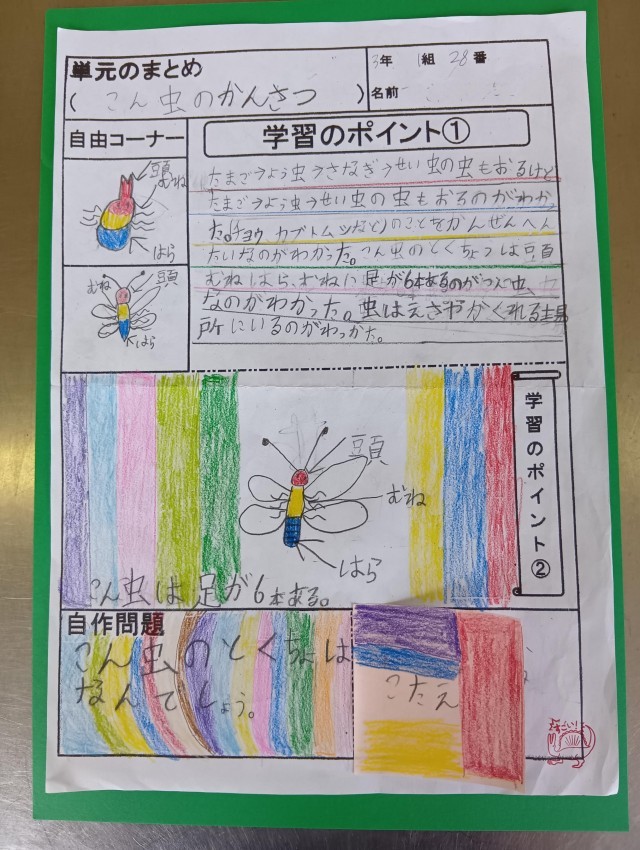 単元のまとめ
(こん虫のかんさつ)
3年 1組 28番
名前
自由コーナー
頭
むね
はら
むね
頭
はら
学習のポイント①
たまご→よう虫→さなぎ→せい虫の虫もおるけど
たまご→よう虫→せい虫の虫もおるのがわかっ
た。(チョウ、カブトムシなど)のことをかんぜんへん
たいなのがわかった。こん虫のとくちょうは頭
むねはら、むねに足が6本あるのがこん虫
なのがわかった。虫はえさやかくれる場
所にいるのがわっかた。
学習のポイント②
頭
むね
はら
こん虫は足が6本ある。
自作問題
こん虫のとくちょは
なんでしょう。
こたえ
すごい!